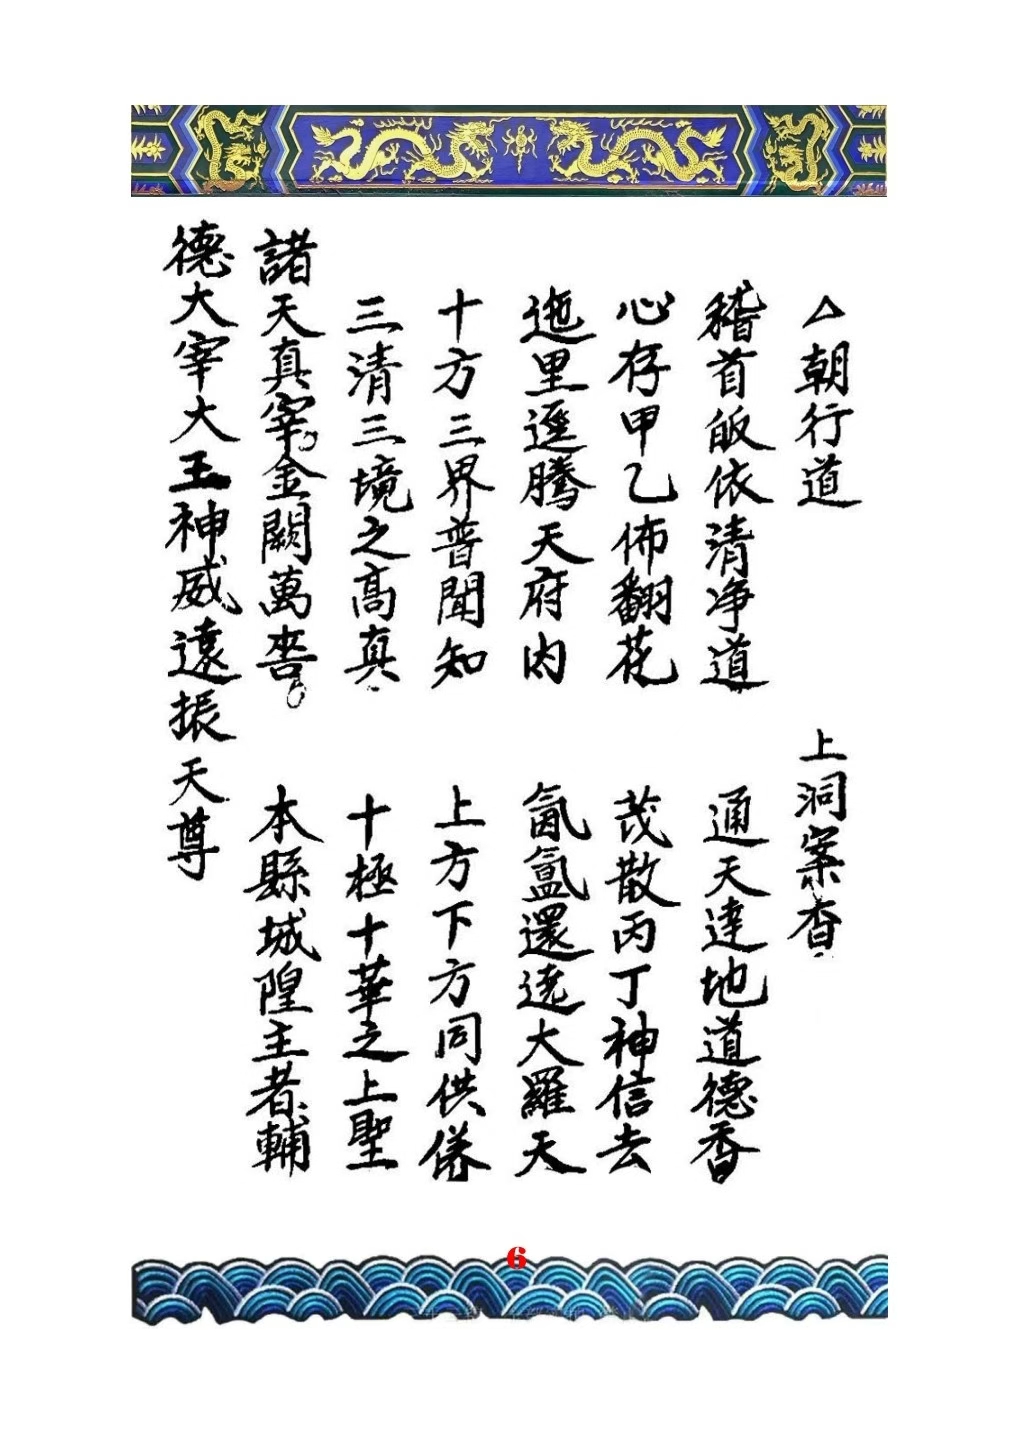 △朝行道 上洞案香
稽首皈依清净道 通天達地道德香
心存甲乙佈翻花 茂散丙丁神信去
迤里逕騰天府内 氤氲還遶大羅天
十方三界普聞知 上方下方同供偹
三清三境之高真 十極十華之上聖
諸天真宰金闕萬 本縣城隍主者輔
德大宰大王神威遠振天尊
6